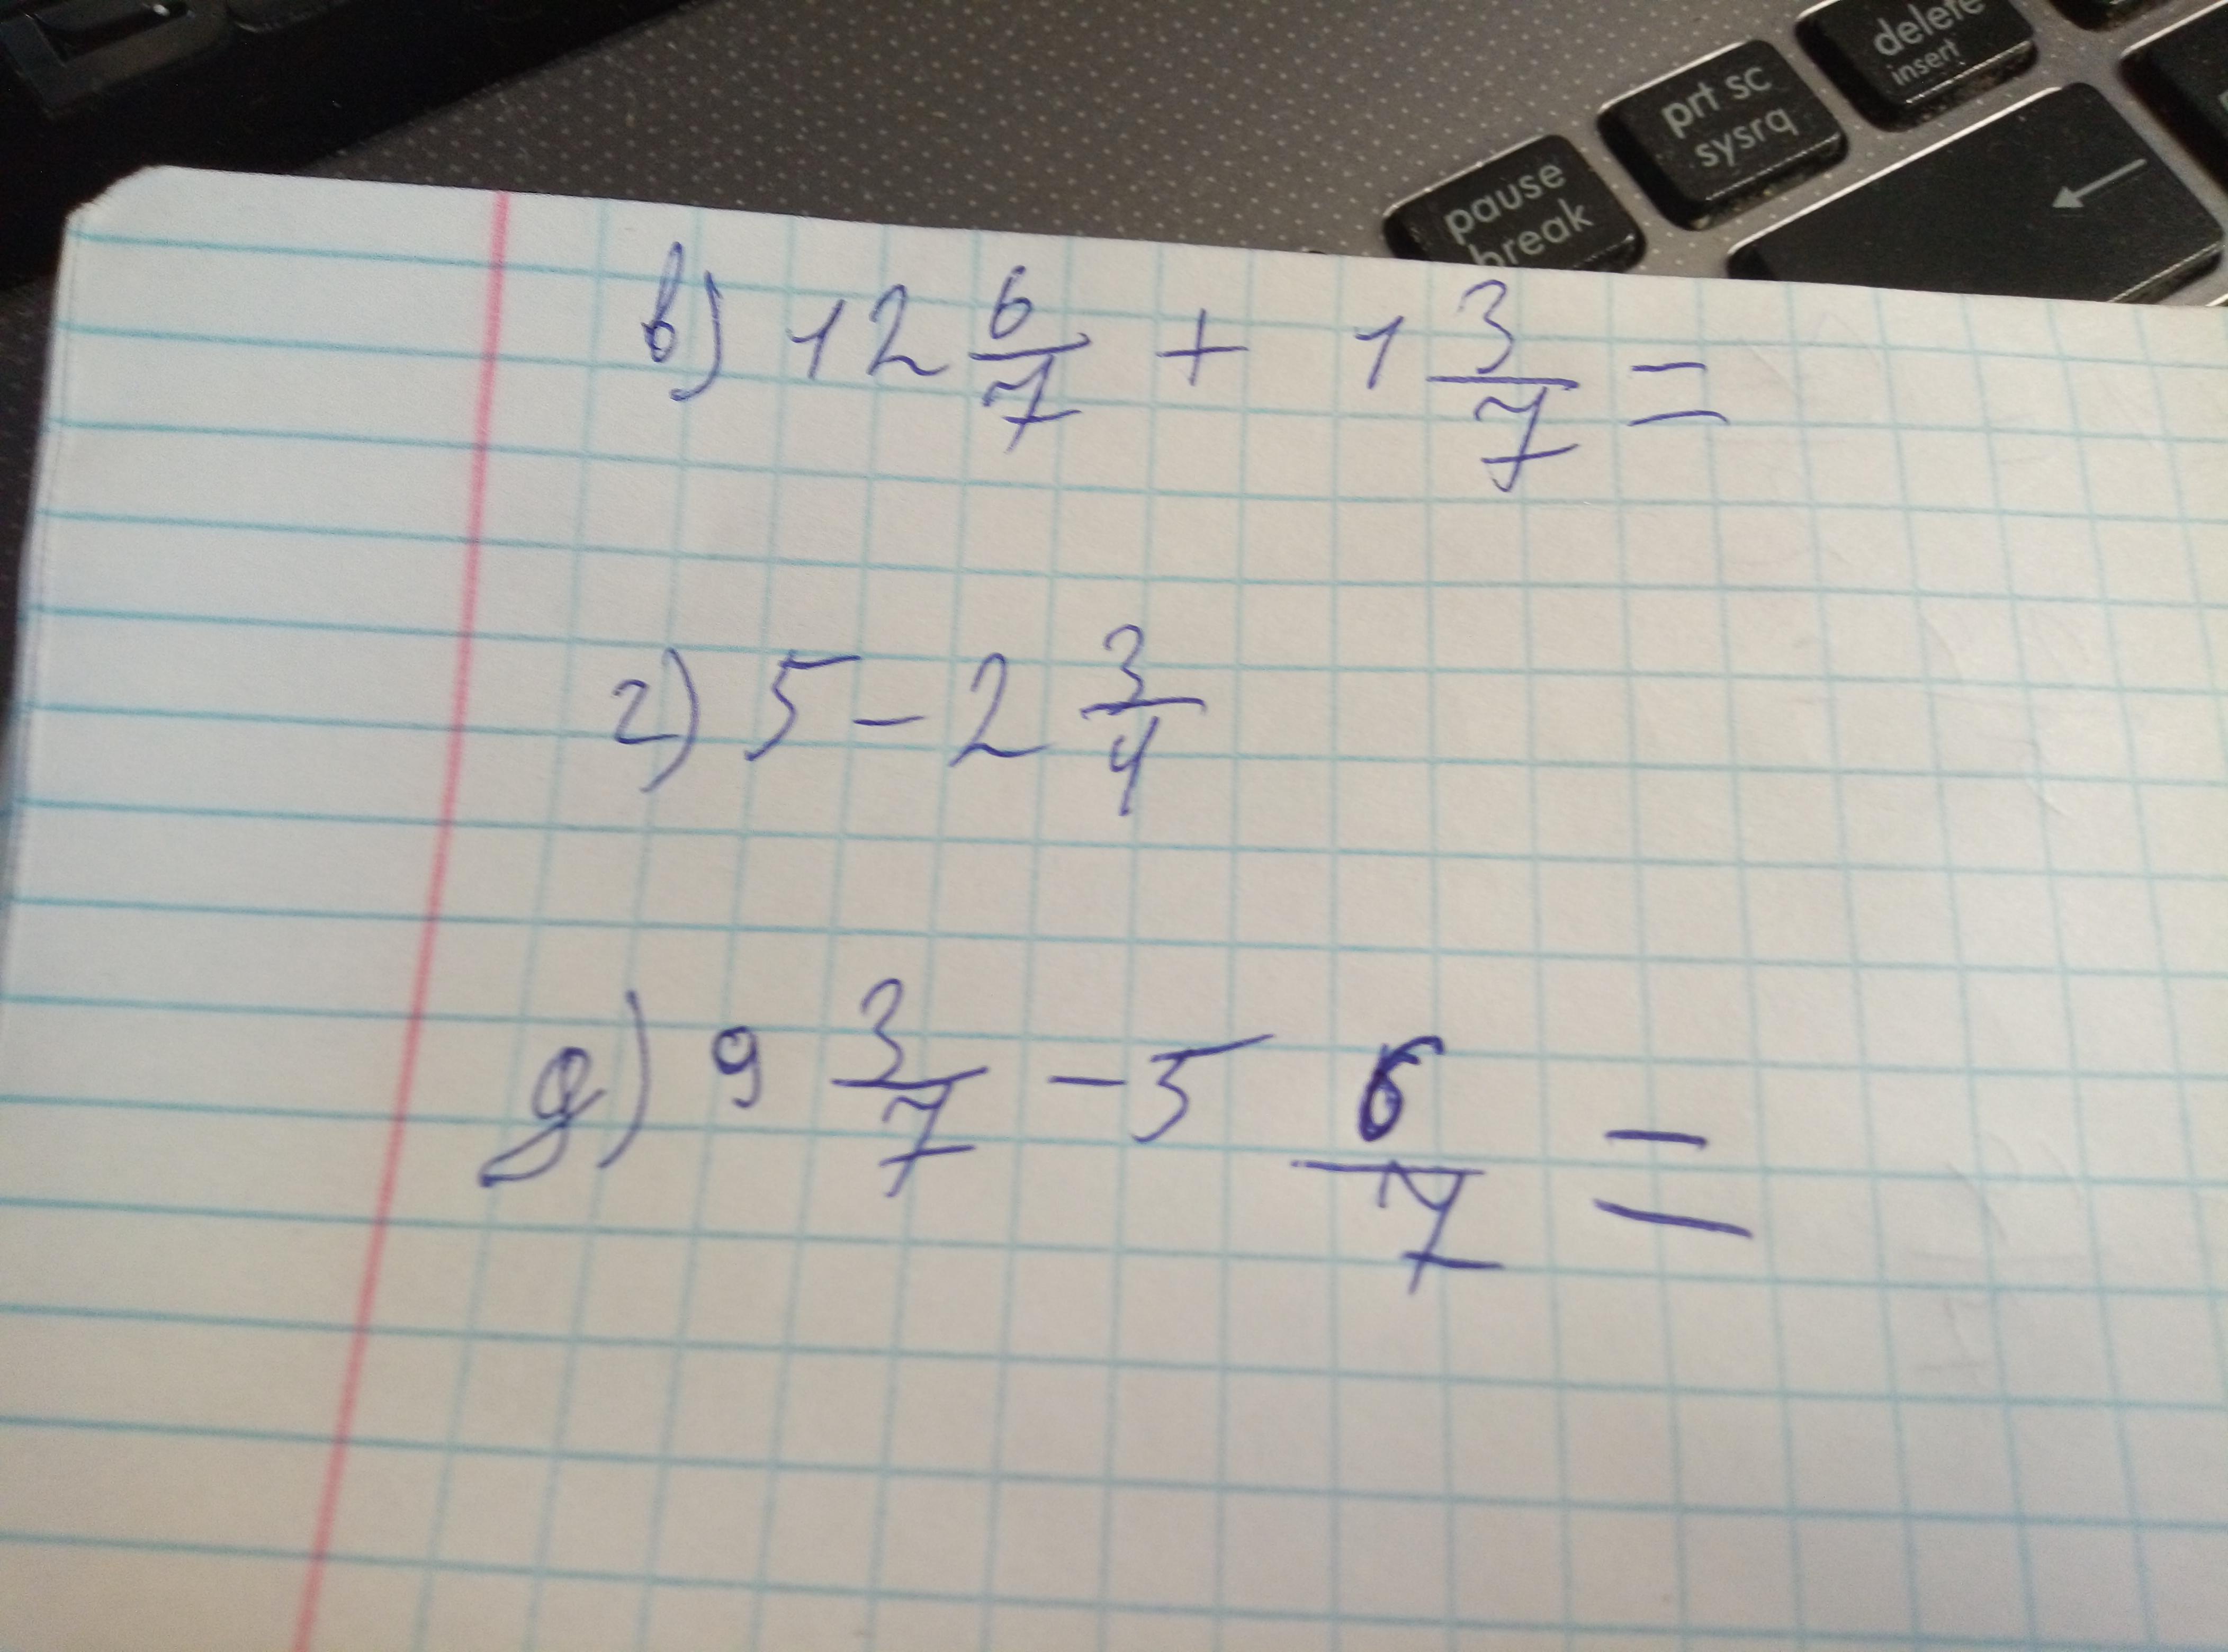 delete
insert
prt sc
sysrq
pause
break
в) 12 6/7 + 1 3/7 =
г) 5 - 2 3/4
д) 9 3/7 - 5 6/7 =